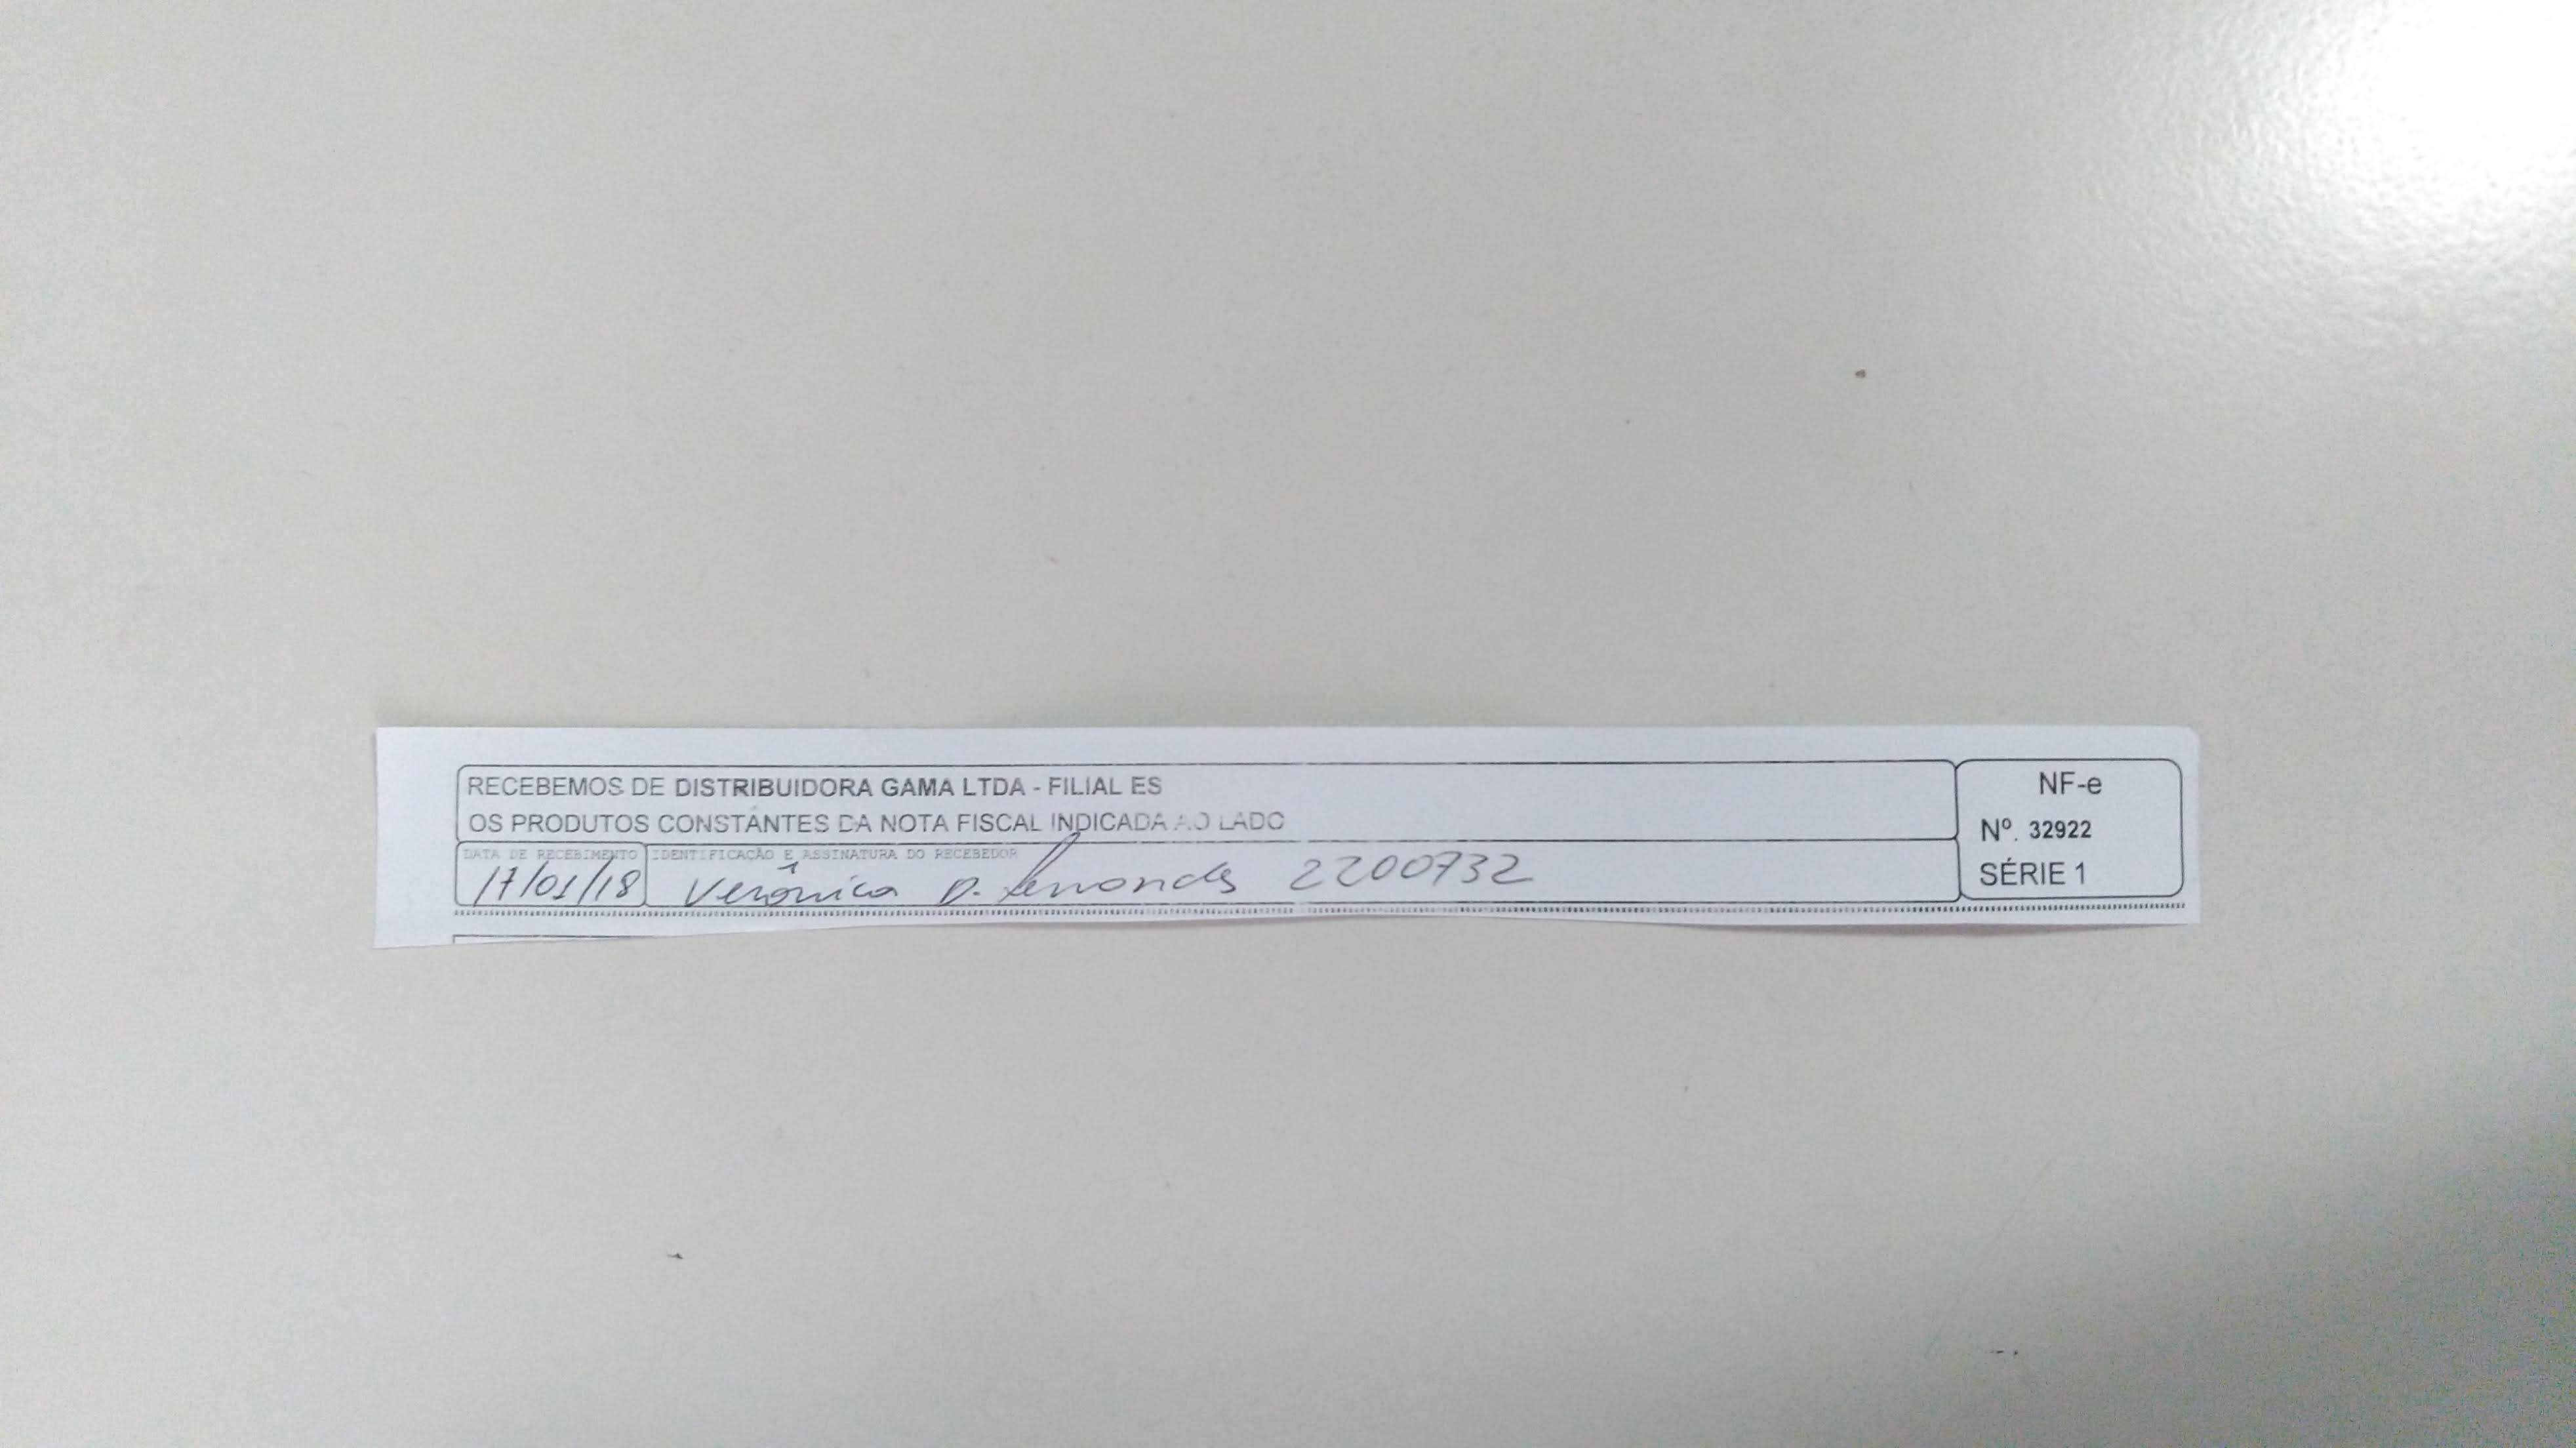 RECEBEMOS DE DISTRIBUIDORA GAMA LTDA - FILIAL ES
OS PRODUTOS CONSTANTES DA NOTA FISCAL INDICADA AO LADO
DATA DE RECEBIMENTO
17/01/18
IDENTIFICAÇÃO E ASSINATURA DO RECEBEDOR
Verônica D. Fernandes 2200732
NF-e
Nº. 32922
SÉRIE 1